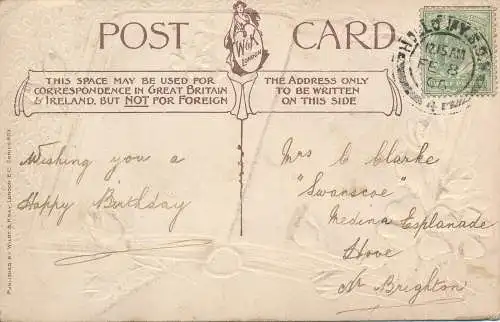 POST CARD
W&K
LONDON
THIS SPACE MAY BE USED FOR
CORRESPONDENCE IN GREAT BRITAIN
& IRELAND, BUT NOT FOR FOREIGN
THE ADDRESS ONLY
TO BE WRITTEN
ON THIS SIDE
12.15 AM
FE 8
Wishing you a
Happy Birthday
Mrs C Clarke
"Swanscoe"
Medina Esplanade
Hove
Nr Brighton
PUBLISHED BY WILDT & KRAY, LONDON, E.C. SERIES